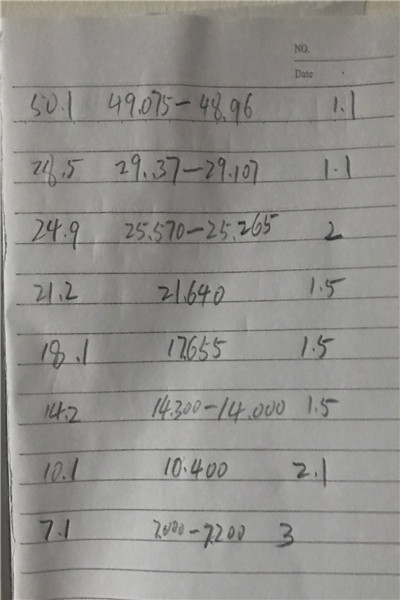 NO.
Date
50.1 49.075-48.96 1.1
28.5 29.37-29.107 1.1
24.9 25.570-25.265 2
21.2 21.640 1.5
18.1 17.655 1.5
14.2 14.300-14.000 1.5
10.1 10.400 2.1
7.1 7.000-7.200 3